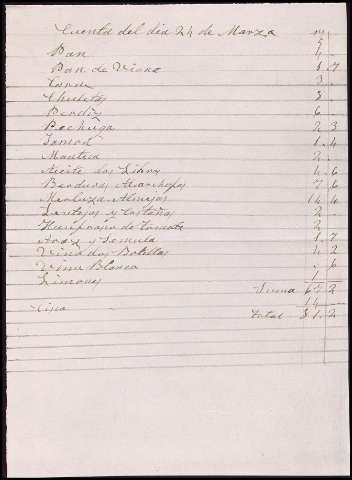 Cuenta del dia 24 de Marzo
Pan 5
Pan de Viena 1.7
Carne 3
Chuletas 5
Perdiz 6
Pechuga 2 3
Jamon 1.4
Manteca 2
Aceite dos Libras 4 6
Berduras Alcachofas 7 6
Merluza Almejas 14 4
Lentejas y Castañas 2
de Tomate 2
Aroz y Semula 1.7
Vino dos Botellas 4 2
Vino Blanco . 6
Limones 1
Suma 67 2
Cisa 14
Total 81.2